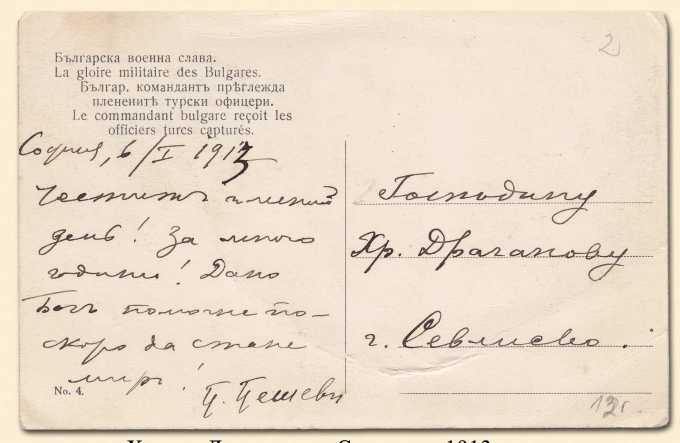 Българска военна слава.
La gloire militaire des Bulgares.
Българ. командантъ прѣглежда
плененитѣ турски офицери.
Le commandant bulgare reçoit les
officiers turcs capturés.
София, 6/I 1913
Честитъ именний
день! За много
години! Дано
Богъ помогне по-
скоро да стане
миръ!
П. Пешевъ
Господину
Хр. Драганову
г. Севлиево.
No. 4.
2